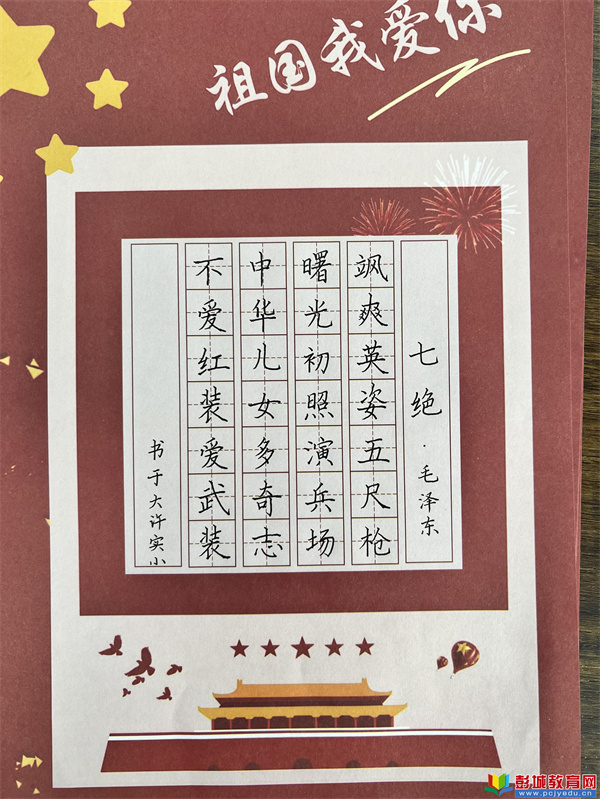 祖国我爱你
七绝·毛泽东
飒爽英姿五尺枪
曙光初照演兵场
中华儿女多奇志
不爱红装爱武装
书于大许实小
彭城教育网
www.pcjyedu.cn